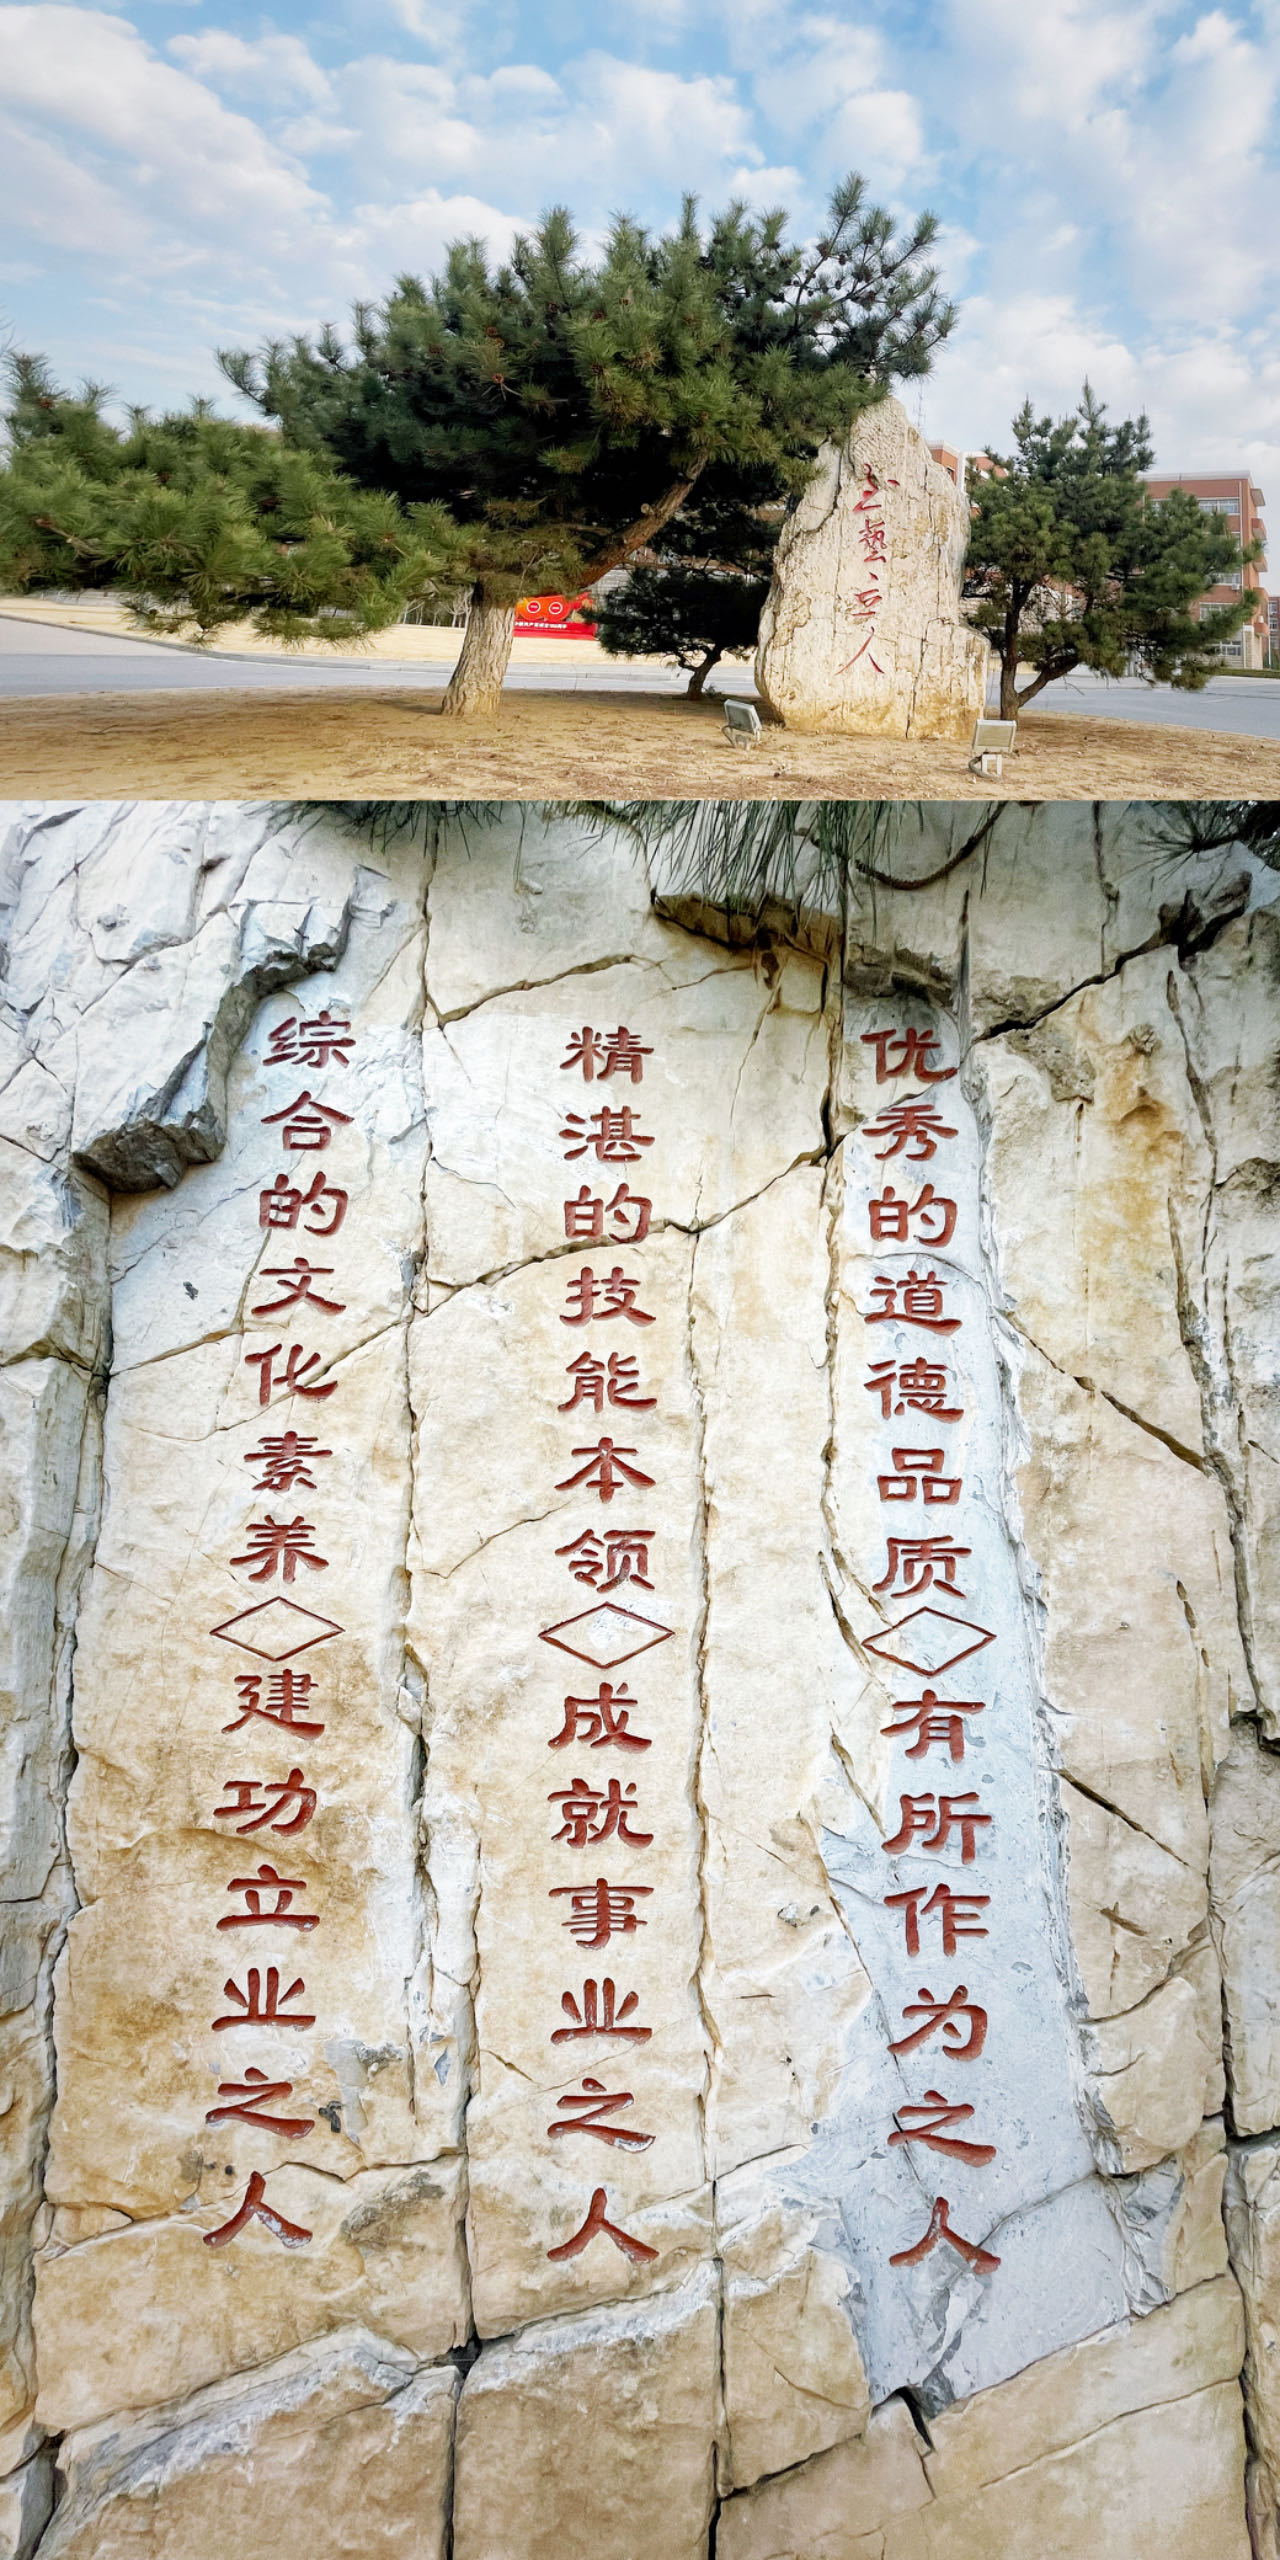 藝立人
优秀的道德品质◇有所作为之人
精湛的技能本领◇成就事业之人
综合的文化素养◇建功立业之人